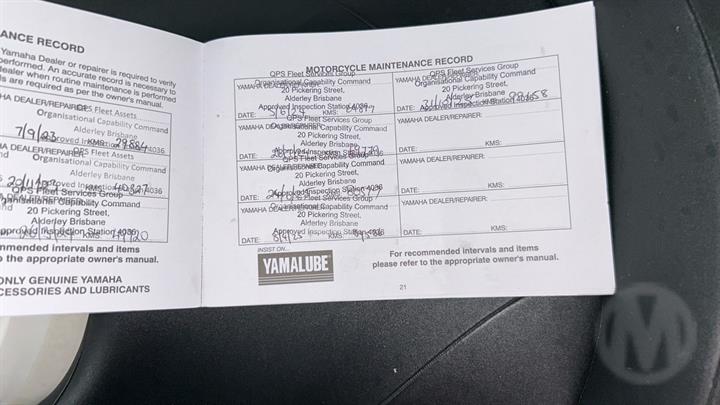 ANCE RECORD
Yamaha Dealer or repairer is required to verify
performed. An accurate record is necessary to
dealer when routine maintenance is performed
ls are required as per the owner's manual.
HA DEALER/REPAIRER:
QPS Fleet Assets
Organisational Capability Command
Alderley Brisbane
Approved Inspection Station 4036
7/9/23 KMS: 29884
QPS Fleet Assets
Organisational Capability Command
Alderley Brisbane
Approved Inspection Station 4036
KMS: 40327
QPS Fleet Services Group
Organisational Capability Command
20 Pickering Street,
Alderley Brisbane
Approved Inspection Station 4036
KMS:
mmended intervals and items
o the appropriate owner's manual.
ONLY GENUINE YAMAHA
CCESSORIES AND LUBRICANTS
MOTORCYCLE MAINTENANCE RECORD
QPS Fleet Services Group
Organisational Capability Command
YAMAHA DEALER/REPAIRER:
20 Pickering Street,
Alderley Brisbane
Approved Inspection Station 4036
DATE: KMS:
QPS Fleet Services Group
YAMAHA DEALER/REPAIRER: Organisational Capability Command
20 Pickering Street,
Alderley Brisbane
Approved Inspection Station 4036
DATE: KMS:
QPS Fleet Services Group
YAMAHA DEALER/REPAIRER: Organisational Capability Command
20 Pickering Street,
Alderley Brisbane
Approved Inspection Station 4036
DATE: KMS:
QPS Fleet Services Group
YAMAHA DEALER/REPAIRER: Organisational Capability Command
20 Pickering Street,
Alderley Brisbane
Approved Inspection Station 4036
DATE: KMS:
QPS Fleet Services Group
YAMAHA DEALER/REPAIRER: Organisational Capability Command
20 Pickering Street,
Alderley Brisbane
Approved Inspection Station 4036
DATE: KMS:
YAMAHA DEALER/REPAIRER:
DATE: KMS:
YAMAHA DEALER/REPAIRER:
DATE: KMS:
YAMAHA DEALER/REPAIRER:
DATE: KMS:
INSIST ON...
YAMALUBE
For recommended intervals and items
please refer to the appropriate owner's manual.
21
M